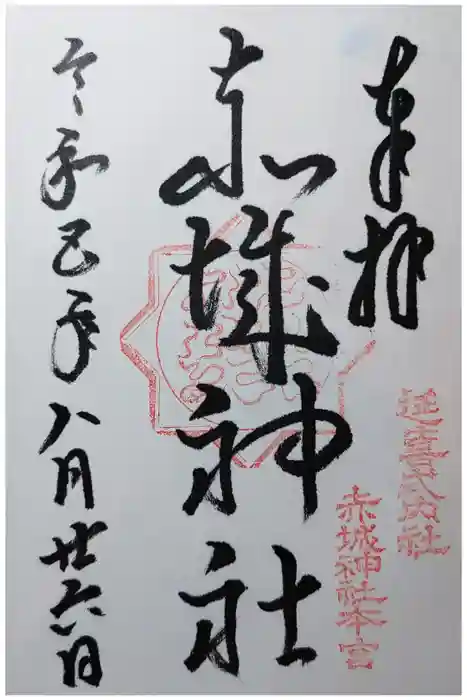 奉拝
延喜式内社
赤城神社本宮
赤城神社
令和己年八月廿六日